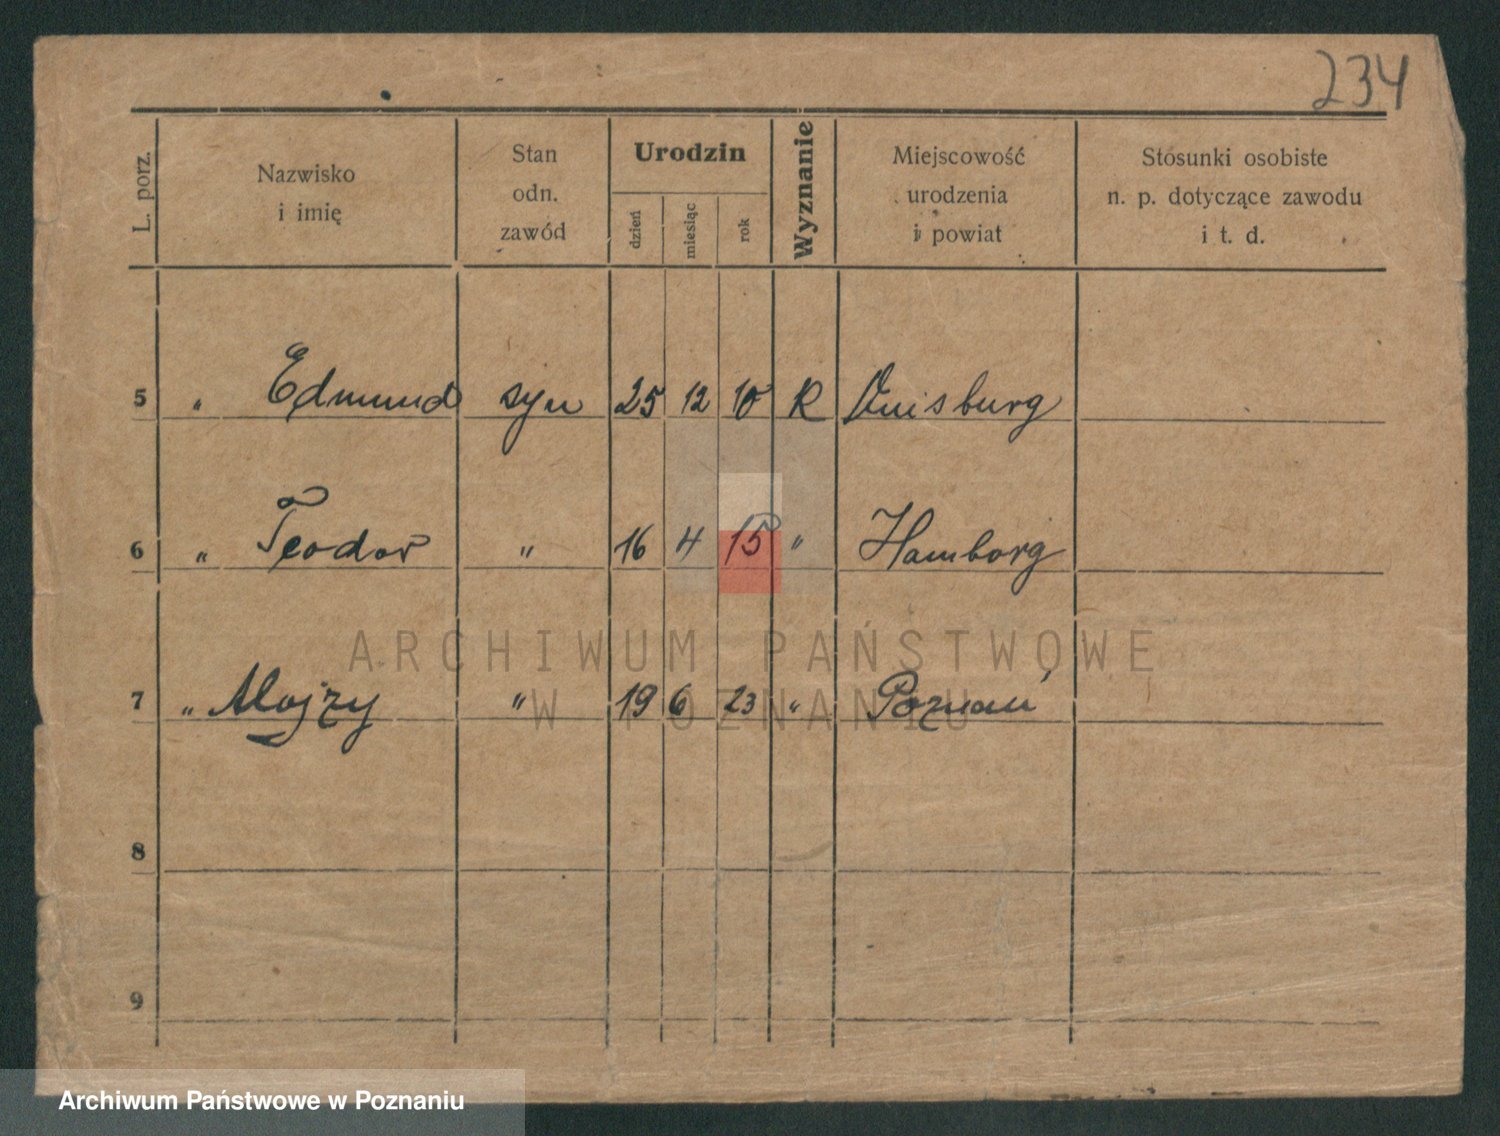 234
L. porz.
Nazwisko
i imię
Stan
odn.
zawód
Urodzin
dzień
miesiąc
rok
Wyznanie
Miejscowość
urodzenia
i powiat
Stosunki osobiste
n. p. dotyczące zawodu
i t. d.
5 " Edmund syn 25 12 10 R Duisburg
6 " Teodor " 16 4 15 " Hamborg
7 " Alojzy " 19 6 23 " Poznań
8
9
ARCHIWUM PAŃSTWOWE
W POZNANIU
Archiwum Państwowe w Poznaniu